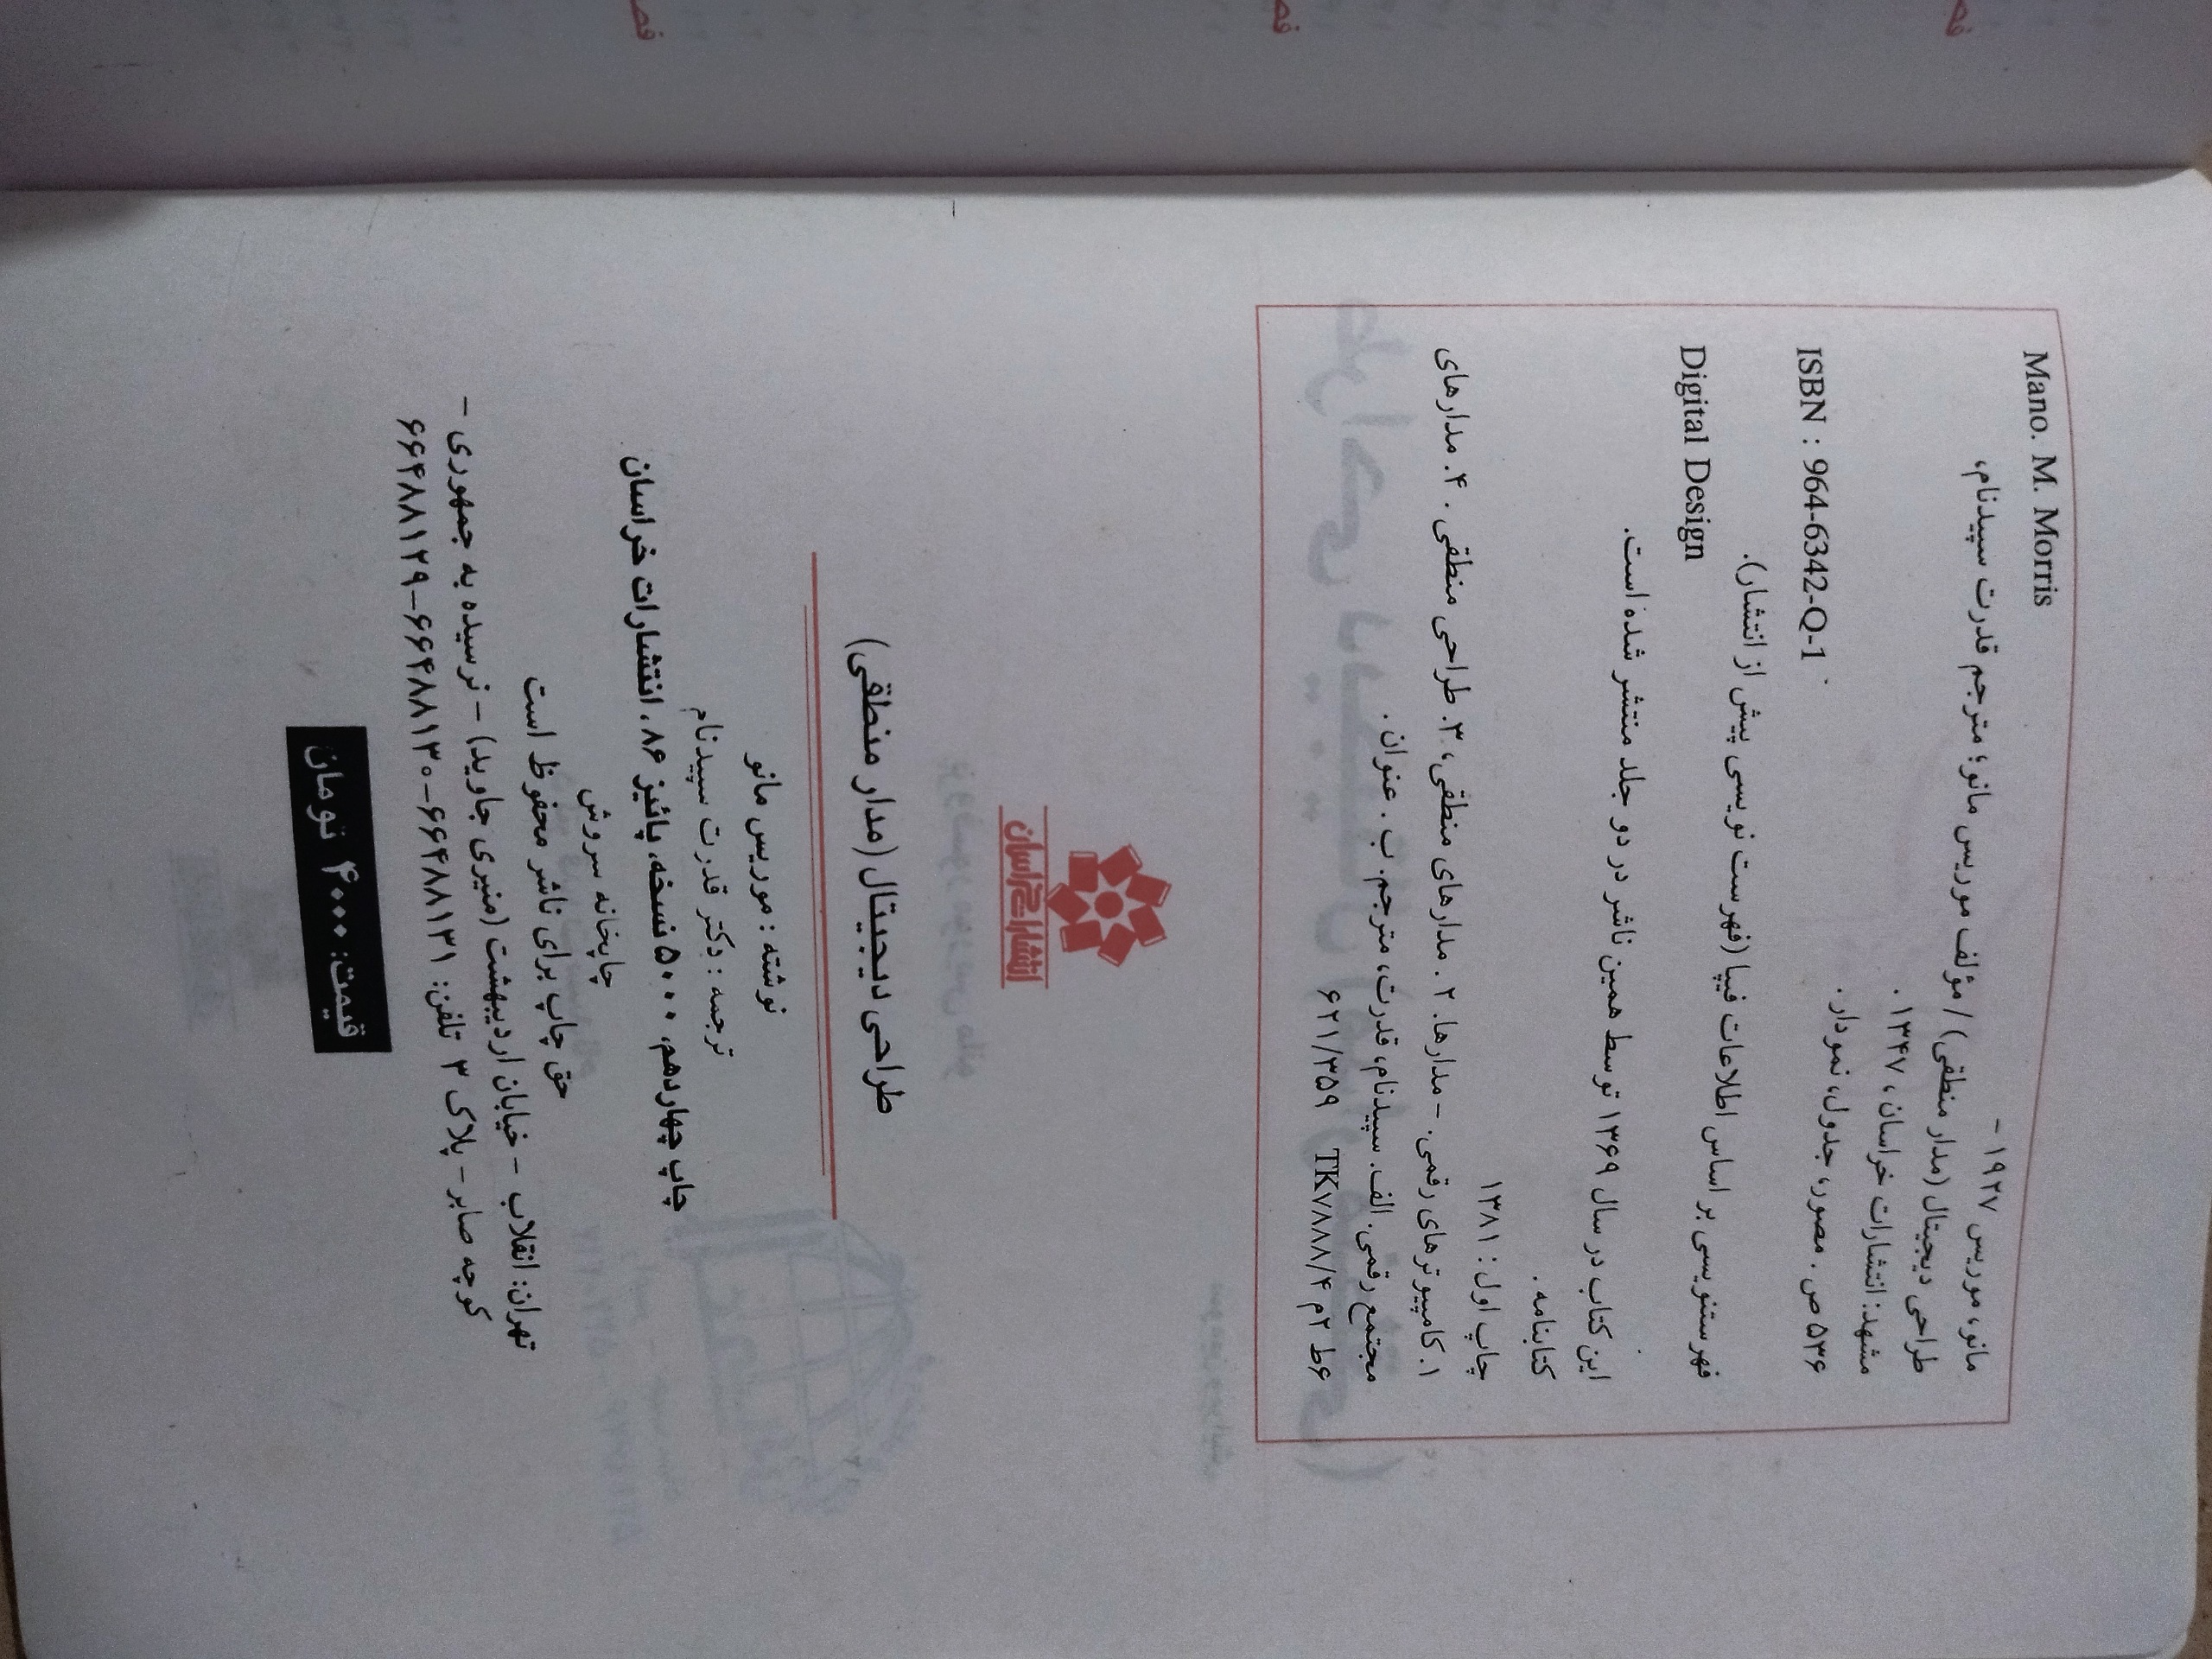 Mano. M. Morris
مانو، موریس ۱۹۲۷ -
طراحی دیجیتال (مدار منطقی) / مؤلف موریس مانو؛ مترجم قدرت سپیدنام،
مشهد: انتشارات خراسان، ۱۳۴۷ .
۵۳۶ ص . مصور، جدول، نمودار .
ISBN : 964-6342-Q-1
فهرستنویسی بر اساس اطلاعات فیپا (فهرست نویسی پیش از انتشار).
Digital Design
این کتاب در سال ۱۳۶۹ توسط همین ناشر در دو جلد منتشر شده است.
کتابنامه .
چاپ اول : ۱۳۸۱
۱. کامپیوترهای رقمی. - مدارها. ۲ . مدارهای منطقی، ۳. طراحی منطقی . ۴. مدارهای
مجتمع رقمی. الف. سپیدنام، قدرت، مترجم. ب . عنوان .
۶ط ۲م ۴/TK۷۸۸۸ ۶۲۱/۳۵۹
انتشارات خراسان
طراحی دیجیتال (مدار منطقی)
نوشته : موریس مانو
ترجمه : دکتر قدرت سپیدنام
چاپ چهاردهم، ۵۰۰۰ نسخه، پائیز ۸۶، انتشارات خراسان
چاپخانه سروش
حق چاپ برای ناشر محفوظ است
تهران: انقلاب - خیابان اردیبهشت (منیری جاوید) - نرسیده به جمهوری -
کوچه صابر - پلاک ۳ تلفن: ۶۶۴۸۸۱۳۱-۶۶۴۸۸۱۳۰-۶۶۴۸۸۱۲۹
قیمت: ۴۰۰۰ تومان